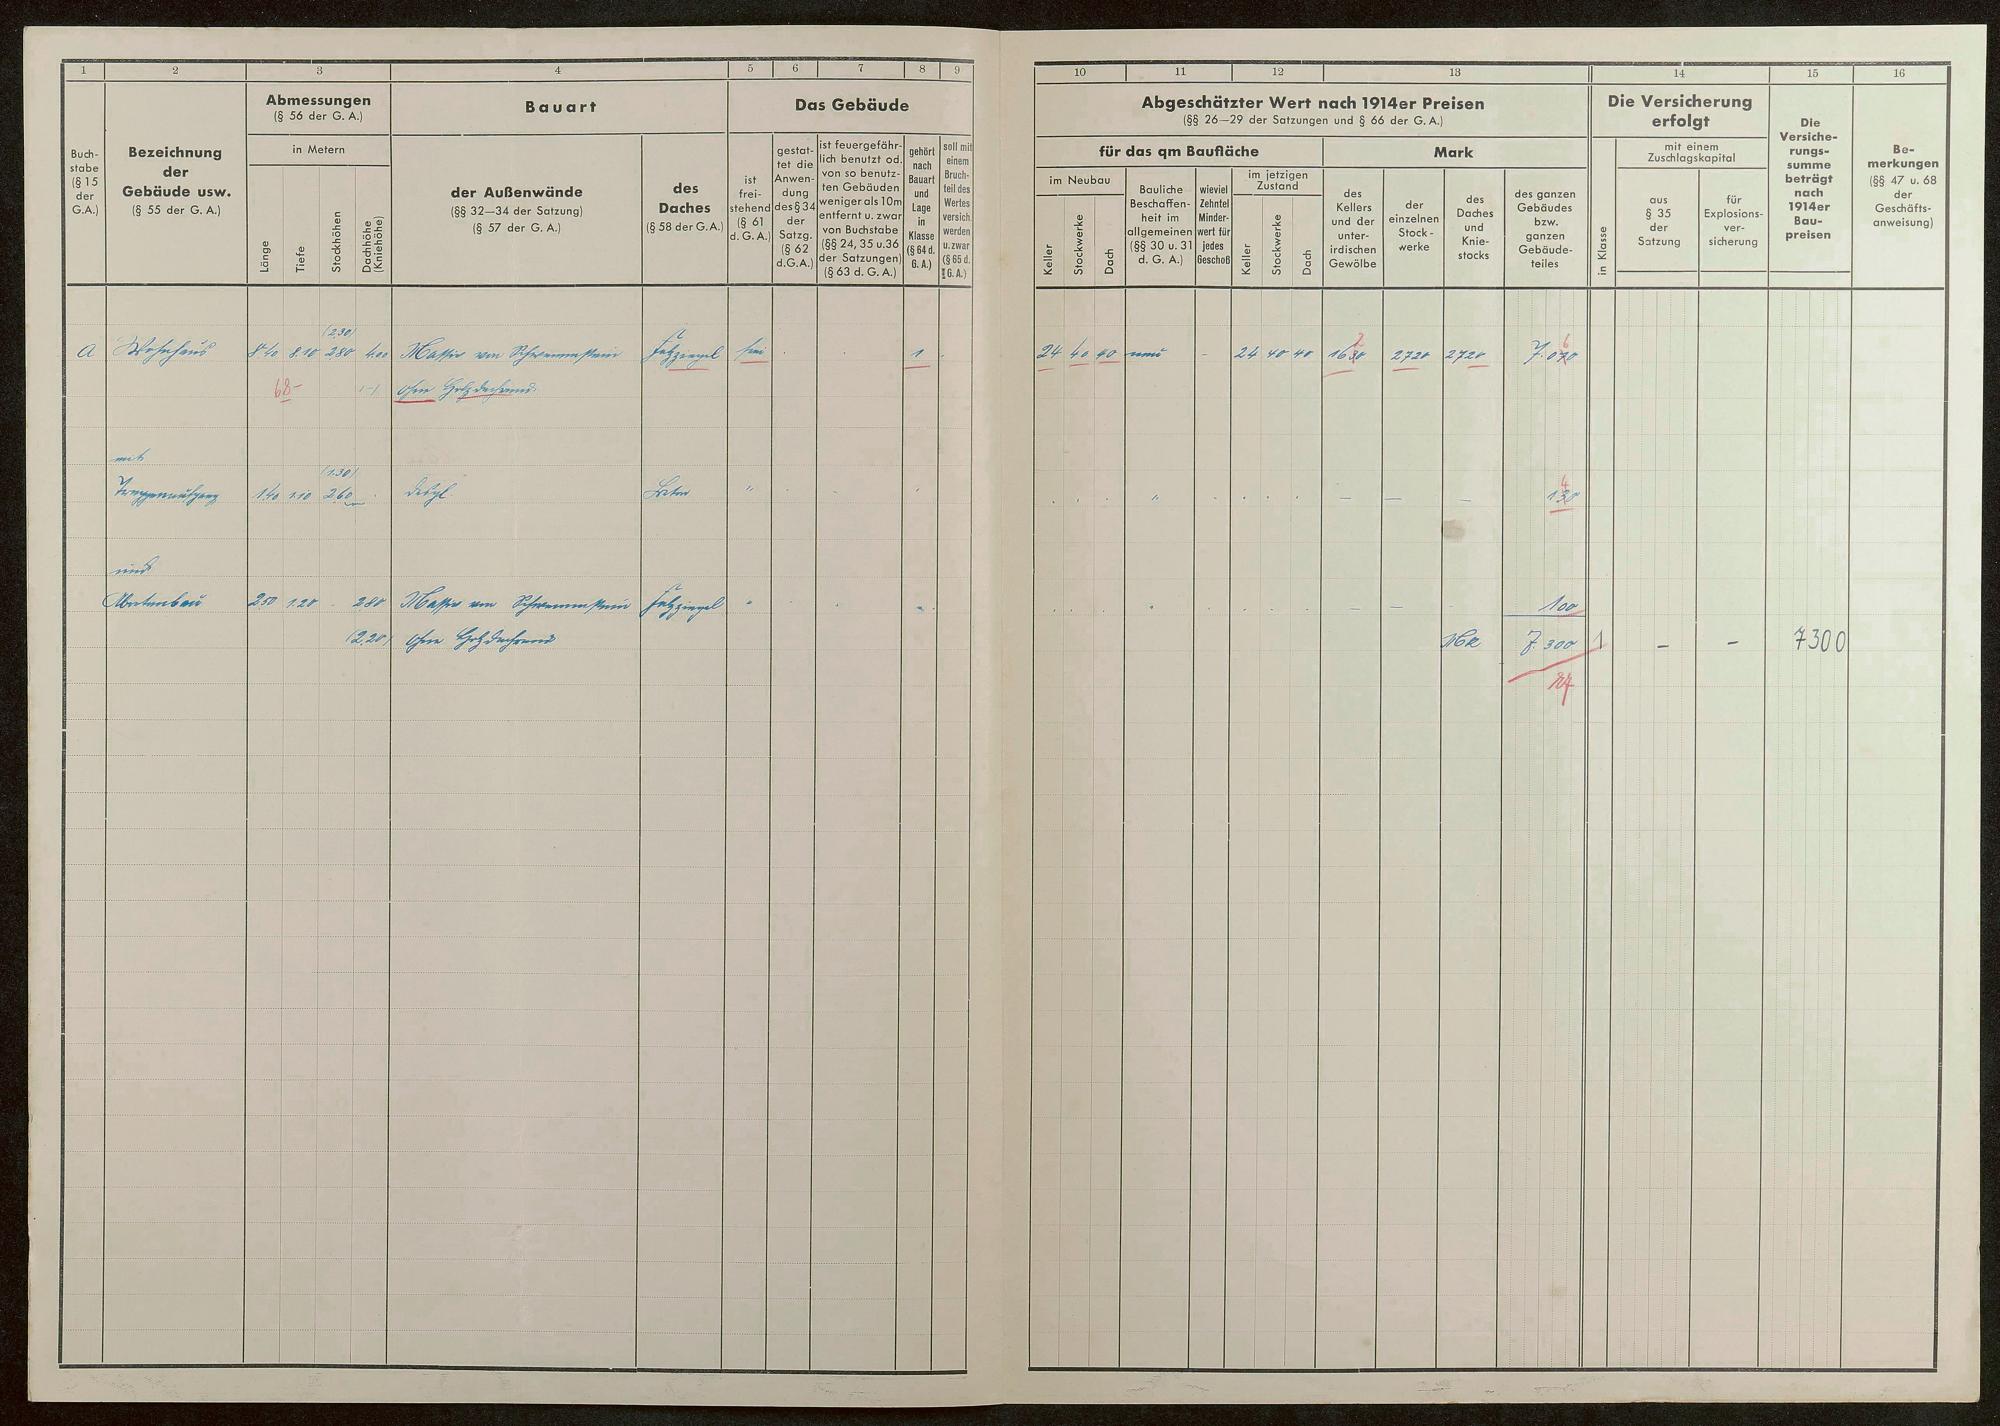 1 2 3 4 5 6 7 8 9
Buch-
stabe
(§ 15
der
G.A.)
Bezeichnung
der
Gebäude usw.
(§ 55 der G. A.)
Abmessungen
(§ 56 der G. A.)
in Metern
Länge
Tiefe
Stockhöhen
Dachhöhe
(Kniehöhe)
Bauart
der Außenwände
(§§ 32—34 der Satzung)
(§ 57 der G. A.)
des
Daches
(§ 58 der G.A.)
Das Gebäude
ist
frei-
stehend
(§ 61
d. G. A.)
gestat-
tet die
Anwen-
dung
des § 34
der
Satzg.
(§ 62
d.G.A.)
ist feuergefähr-
lich benutzt od.
von so benutz-
ten Gebäuden
weniger als 10m
entfernt u. zwar
von Buchstabe
(§§ 24, 35 u.36
der Satzungen)
(§ 63 d. G. A.)
gehört
nach
Bauart
und
Lage
in
Klasse
(§ 64 d.
G. A.)
soll mit
einem
Bruch-
teil des
Wertes
versich.
werden
u. zwar
(§ 65 d.
G. A.)
A Wohnhaus 8.40 8.10 (2.30) 280 4.00 Massiv von Schwemmstein Falzziegel frei 1
68- (-) ohne Holzdachrand
mit
Treppenaufgang 1.40 1.10 (1.30) 260 desgl. Beton "
und
Abortanbau 2.50 1.20 . 280 Massiv von Schwemmstein Falzziegel "
(2.20) ohne Holzdachrand
10 11 12 13 14 15 16
Abgeschätzter Wert nach 1914er Preisen
(§§ 26—29 der Satzungen und § 66 der G. A.)
für das qm Baufläche
im Neubau
Keller
Stockwerke
Dach
Bauliche
Beschaffen-
heit im
allgemeinen
(§§ 30 u. 31
d. G. A.)
wieviel
Zehntel
Minder-
wert für
jedes
Geschoß
im jetzigen
Zustand
Keller
Stockwerke
Dach
Mark
des
Kellers
und der
unter-
irdischen
Gewölbe
der
einzelnen
Stock-
werke
des
Daches
und
Knie-
stocks
des ganzen
Gebäudes
bzw.
ganzen
Gebäude-
teiles
Die Versicherung
erfolgt
in Klasse
mit einem
Zuschlagskapital
aus
§ 35
der
Satzung
für
Explosions-
ver-
sicherung
Die
Versiche-
rungs-
summe
beträgt
nach
1914er
Bau-
preisen
Be-
merkungen
(§§ 47 u. 68
der
Geschäfts-
anweisung)
24 40 40 neu - 24 40 40 1630 2720 2720 7.070
2 6
" — — — 130
4
— — 100
Mk 7.300 1 — — 7300